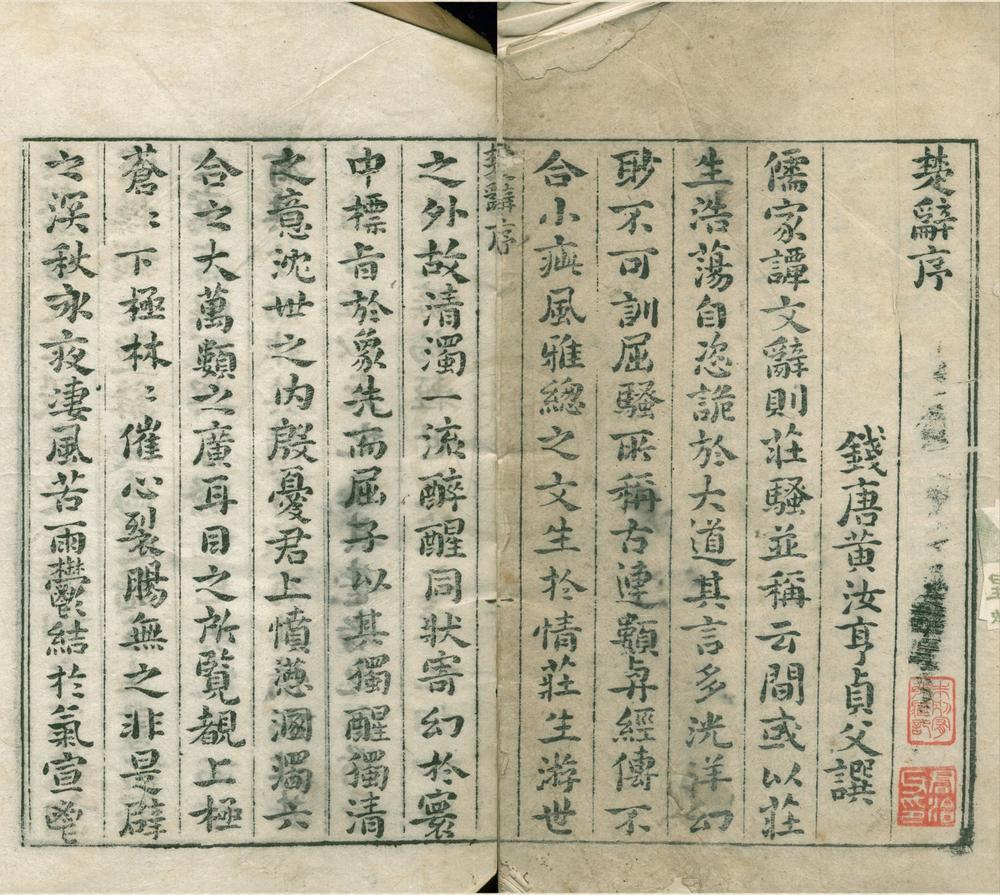 楚辭序
錢唐黃汝亨貞父譔
儒家譚文辭則莊騷並稱云間或以莊
生浩蕩自恣詭於大道其言多洸洋幻
眇不可訓屈騷所稱古連顭弃經傳不
合小疵風雅總之文生於情莊生游世
楚辭序
之外故清濁一流醉醒同狀寄幻於寰
中標旨於象先而屈子以其獨醒獨清
之意沈世之內殷憂君上憤懣溷濁六
合之大萬顭之廣耳目之所覽覩上極
蒼〻下極林〻催心裂腸無之非是辟
之溪秋永夜淒風苦雨鬱結於氣宣鬯